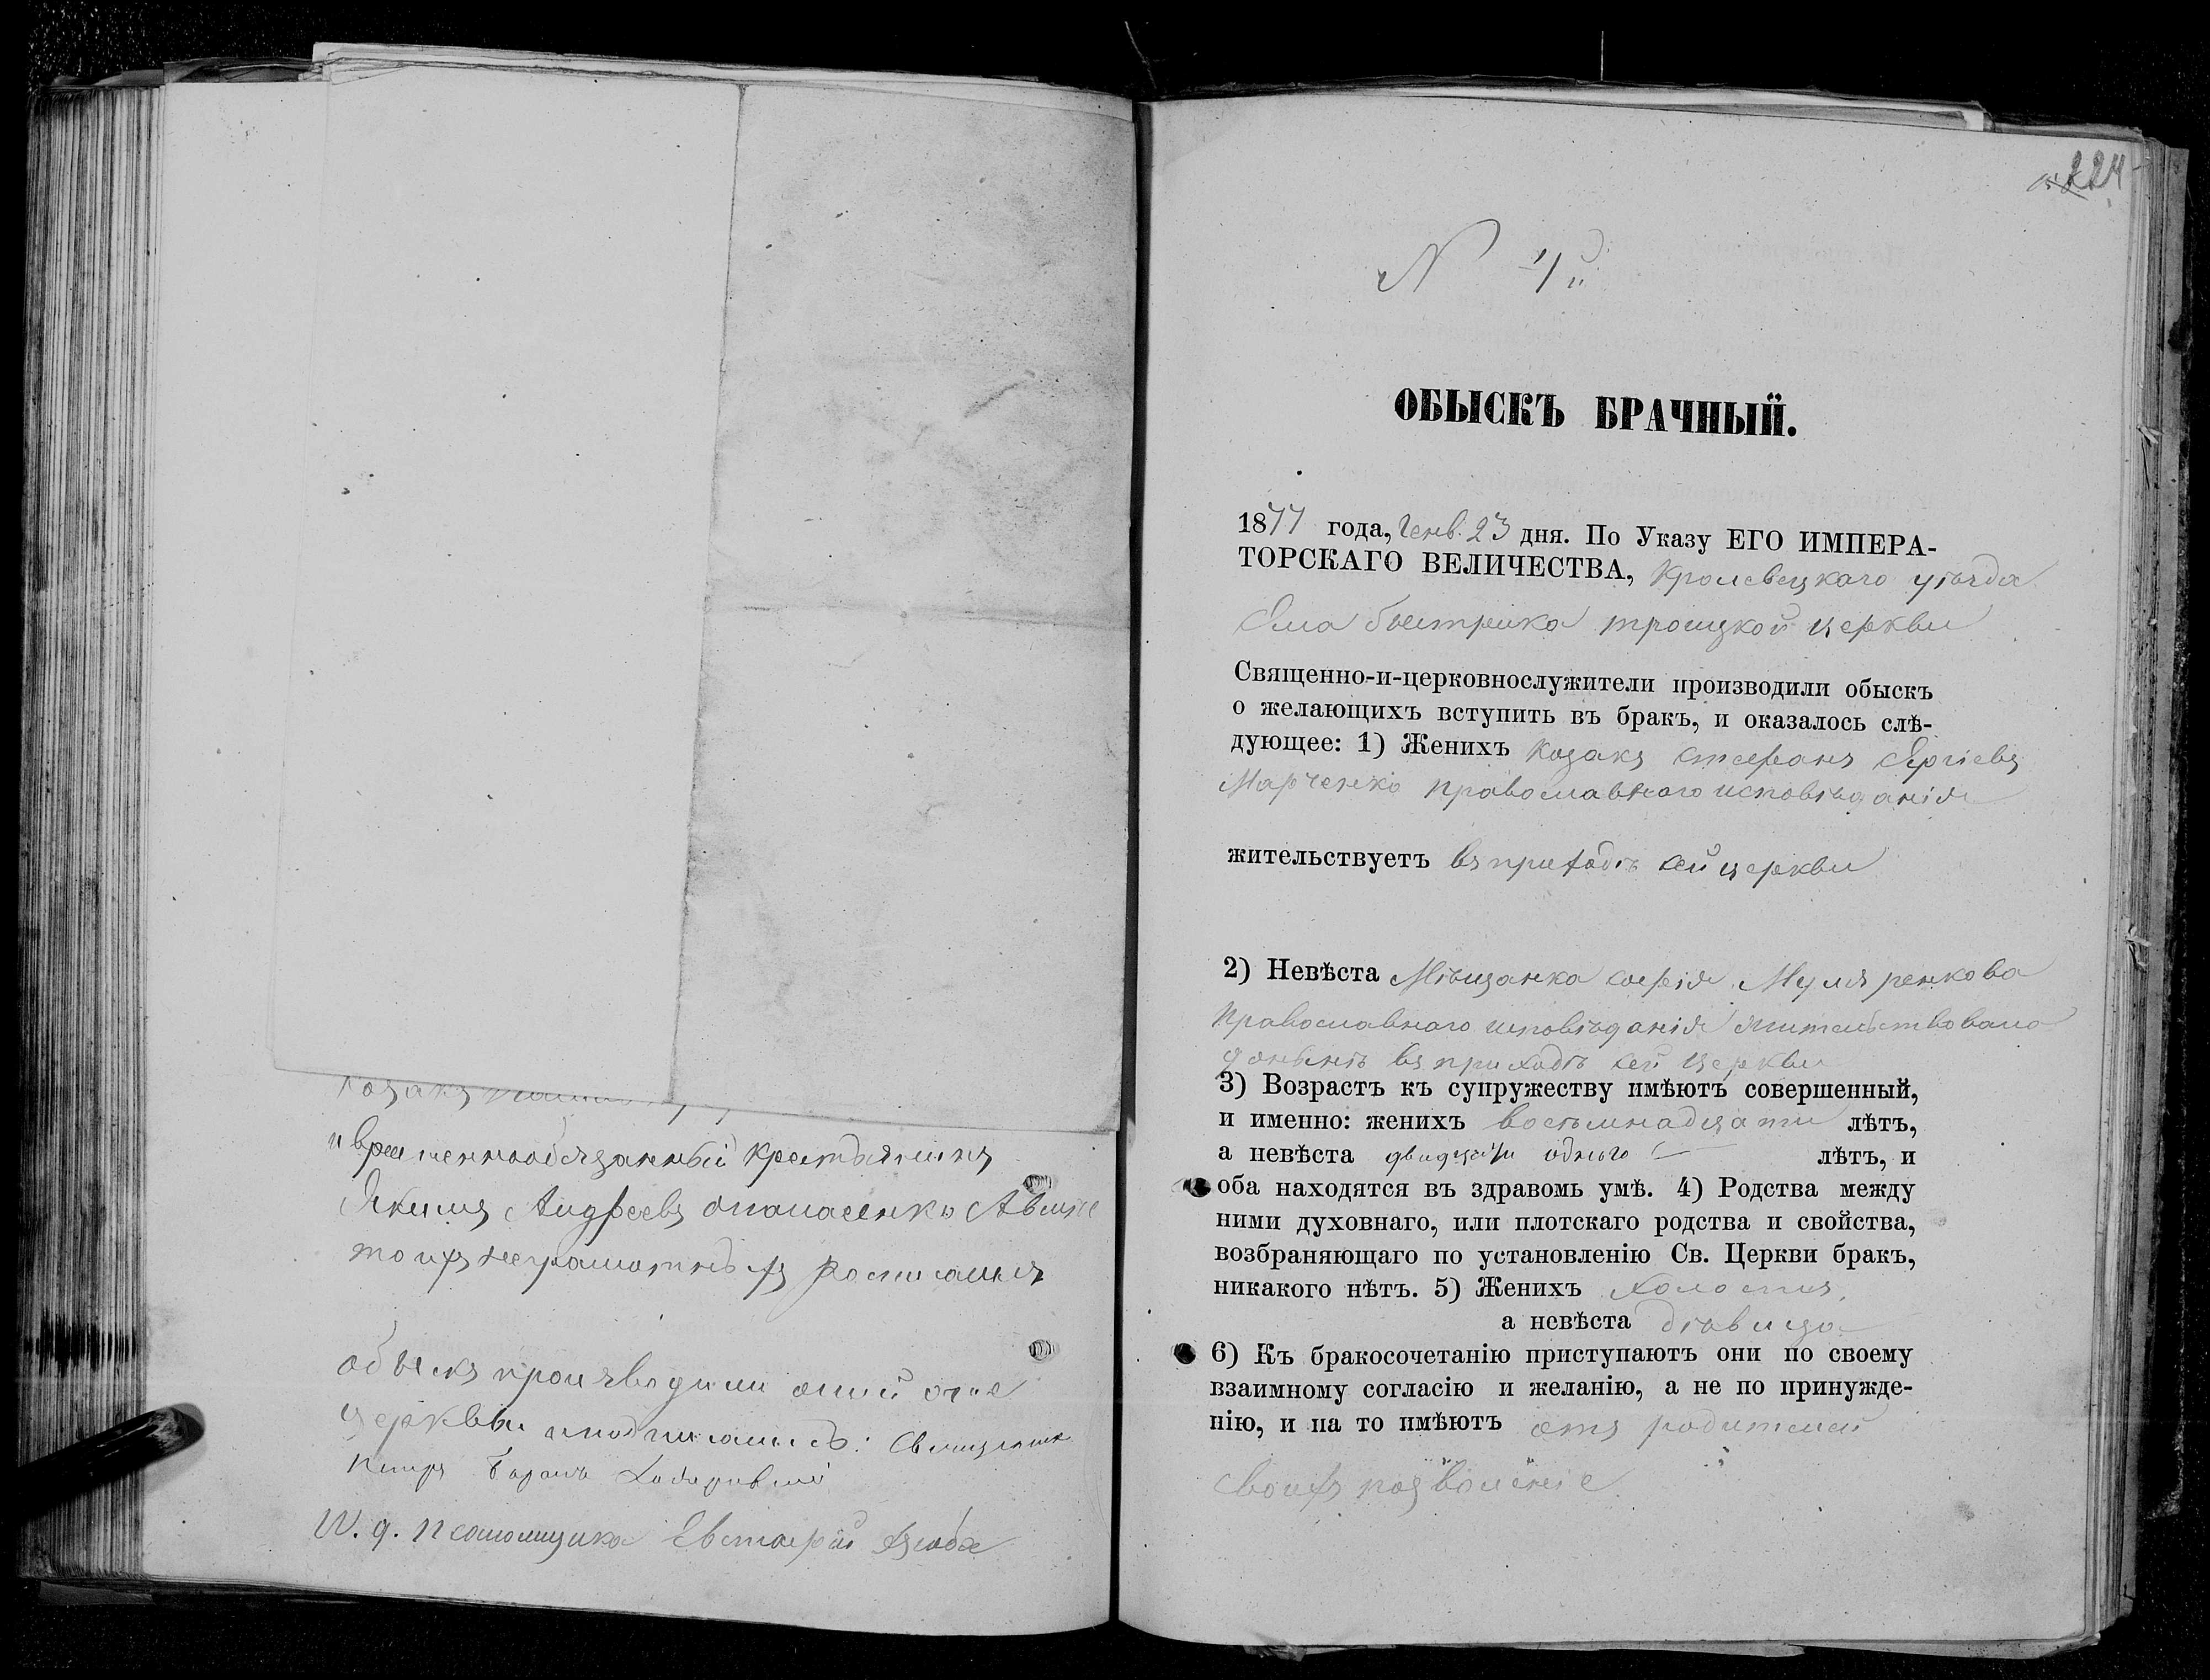 козакъ
и временнообязанный крестьянинъ
Якимъ Андреевъ Опанасенко а вмѣсто
ихъ неграмотныхъ росписался
обыскъ производили оной
церкви и подписались: Священник
Петръ
И. д. псаломщика Евстафій Дзюба
224
N 4й
ОБЫСКЪ БРАЧНЫЙ.
1877 года, Генв. 23 дня. По Указу ЕГО ИМПЕРА-
ТОРСКАГО ВЕЛИЧЕСТВА, Кролевецкаго уѣзда
Села Быстрика троицкой церкви
Священно-и-церковнослужители производили обыскъ
о желающихъ вступить въ бракъ, и оказалось слѣ-
дующее: 1) Женихъ козакъ Стефанъ Сергіевъ
Марченко православного исповѣданія
жительствуетъ въ приходѣ сей церкви
2) Невѣста Мѣщанка софія Муляренкова
православнаго исповѣданія жительствовала
донынѣ въ приходѣ сей церкви
3) Возрастъ къ супружеству имѣютъ совершенный,
и именно: женихъ восемнадцати лѣтъ,
а невѣста двадцати одного лѣтъ, и
оба находятся въ здравомъ умѣ. 4) Родства между
ними духовнаго, или плотскаго родства и свойства,
возбраняющаго по установленію Св. Церкви бракъ,
никакого нѣтъ. 5) Женихъ холостъ,
а невѣста дѣвица
6) Къ бракосочетанію приступаютъ они по своему
взаимному согласію и желанію, а не по принужде-
нію, и на то имѣютъ отъ родителей
своихъ позволеніе